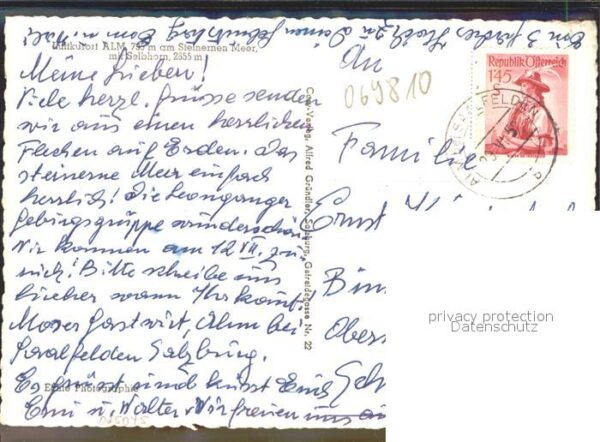 Ein 3 faches Hoch zu Deinem Geburtstag
Luftkurort ALM, 795 m am Steinernen Meer,
mit Selbhorn, 2655 m
Meine Lieben!
Viele herzl. Grüsse senden
wir aus einen herrlichen
Flecken auf Erden. Das
steinerne Meer einfach
herrlich! Die Leonganger
Gebirgsgruppe wunderschön
Wir kommen am 12 VII. zu-
rück! Bitte schreibe uns
hieher wann Ihr kommt.
Moser Gastwirt, Alm bei
Saalfelden Salzburg.
Es grüsst und küsst Euch
Erni u. Walter. Wir freuen uns
Echte Photographie
Cosy-Verlag, Alfred Gründler, Salzburg, Getreidegasse Nr. 22
An
069810
Familie
Ernst
Bin
Ober
Sch
Republik Österreich
1.45
S
SAALFELDEN
privacy protection
Datenschutz